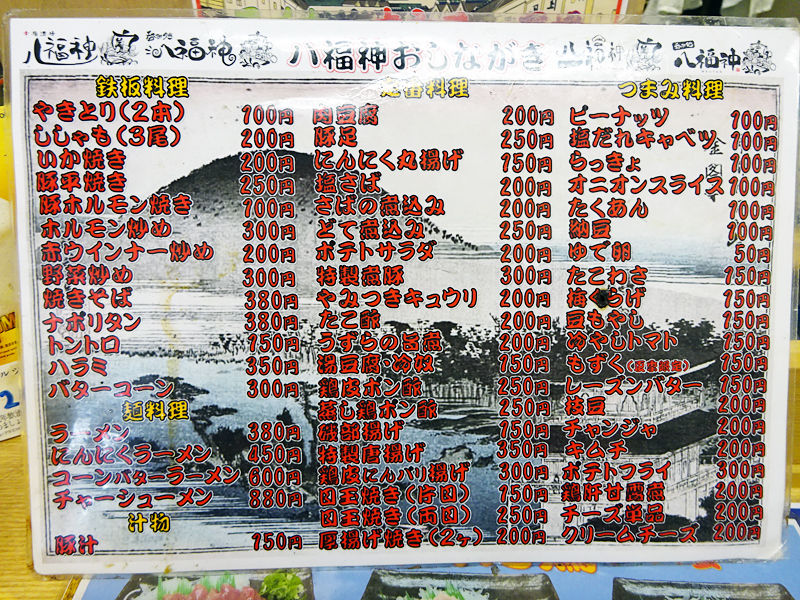 八福神
八福神
八福神おしながき
八福神
八福神
鉄板料理
やきとり(2本) 100円
ししゃも(3尾) 200円
いか焼き 200円
豚平焼き 250円
豚ホルモン焼き 100円
ホルモン炒め 300円
赤ウインナー炒め 200円
野菜炒め 300円
焼きそば 380円
ナポリタン 380円
トントロ 150円
ハラミ 350円
バターコーン 300円
麺料理
ラーメン 380円
にんにくラーメン 450円
コーンバターラーメン 600円
チャーシューメン 880円
汁物
豚汁 150円
定番料理
肉豆腐 200円
豚足 250円
にんにく丸揚げ 150円
塩さば 200円
さばの煮込み 200円
どて煮込み 250円
ポテトサラダ 200円
特製煮豚 300円
やみつきキュウリ 200円
たこ酢 200円
うずらの旨煮 200円
湯豆腐・冷奴 150円
鶏皮ポン酢 250円
蒸し鶏ポン酢 250円
磯部揚げ 150円
特製唐揚げ 350円
鶏皮にんパリ揚げ 300円
目玉焼き(片目) 150円
目玉焼き(両目) 250円
厚揚げ焼き(2ヶ) 200円
つまみ料理
ピーナッツ 100円
塩だれキャベツ 100円
らっきょ 100円
オニオンスライス 100円
たくあん 100円
納豆 100円
ゆで卵 50円
たこわさ 150円
梅くらげ 150円
豆もやし 150円
冷やしトマト 150円
もずく 150円
レーズンバター 150円
枝豆 200円
チャンジャ 200円
キムチ 200円
ポテトフライ 300円
鶏肝甘露煮 200円
チーズ単品 200円
クリームチーズ 200円